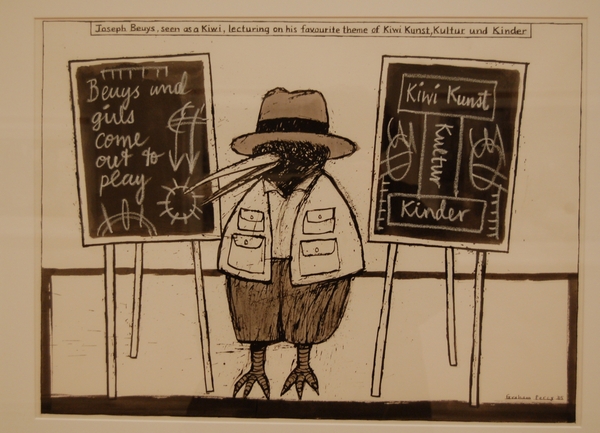 Joseph Beuys, seen as a Kiwi, lecturing on his favourite theme of Kiwi Kunst, Kultur und Kinder
Beuys und
girls
come
out to
play
Kiwi Kunst
Kultur
Kinder